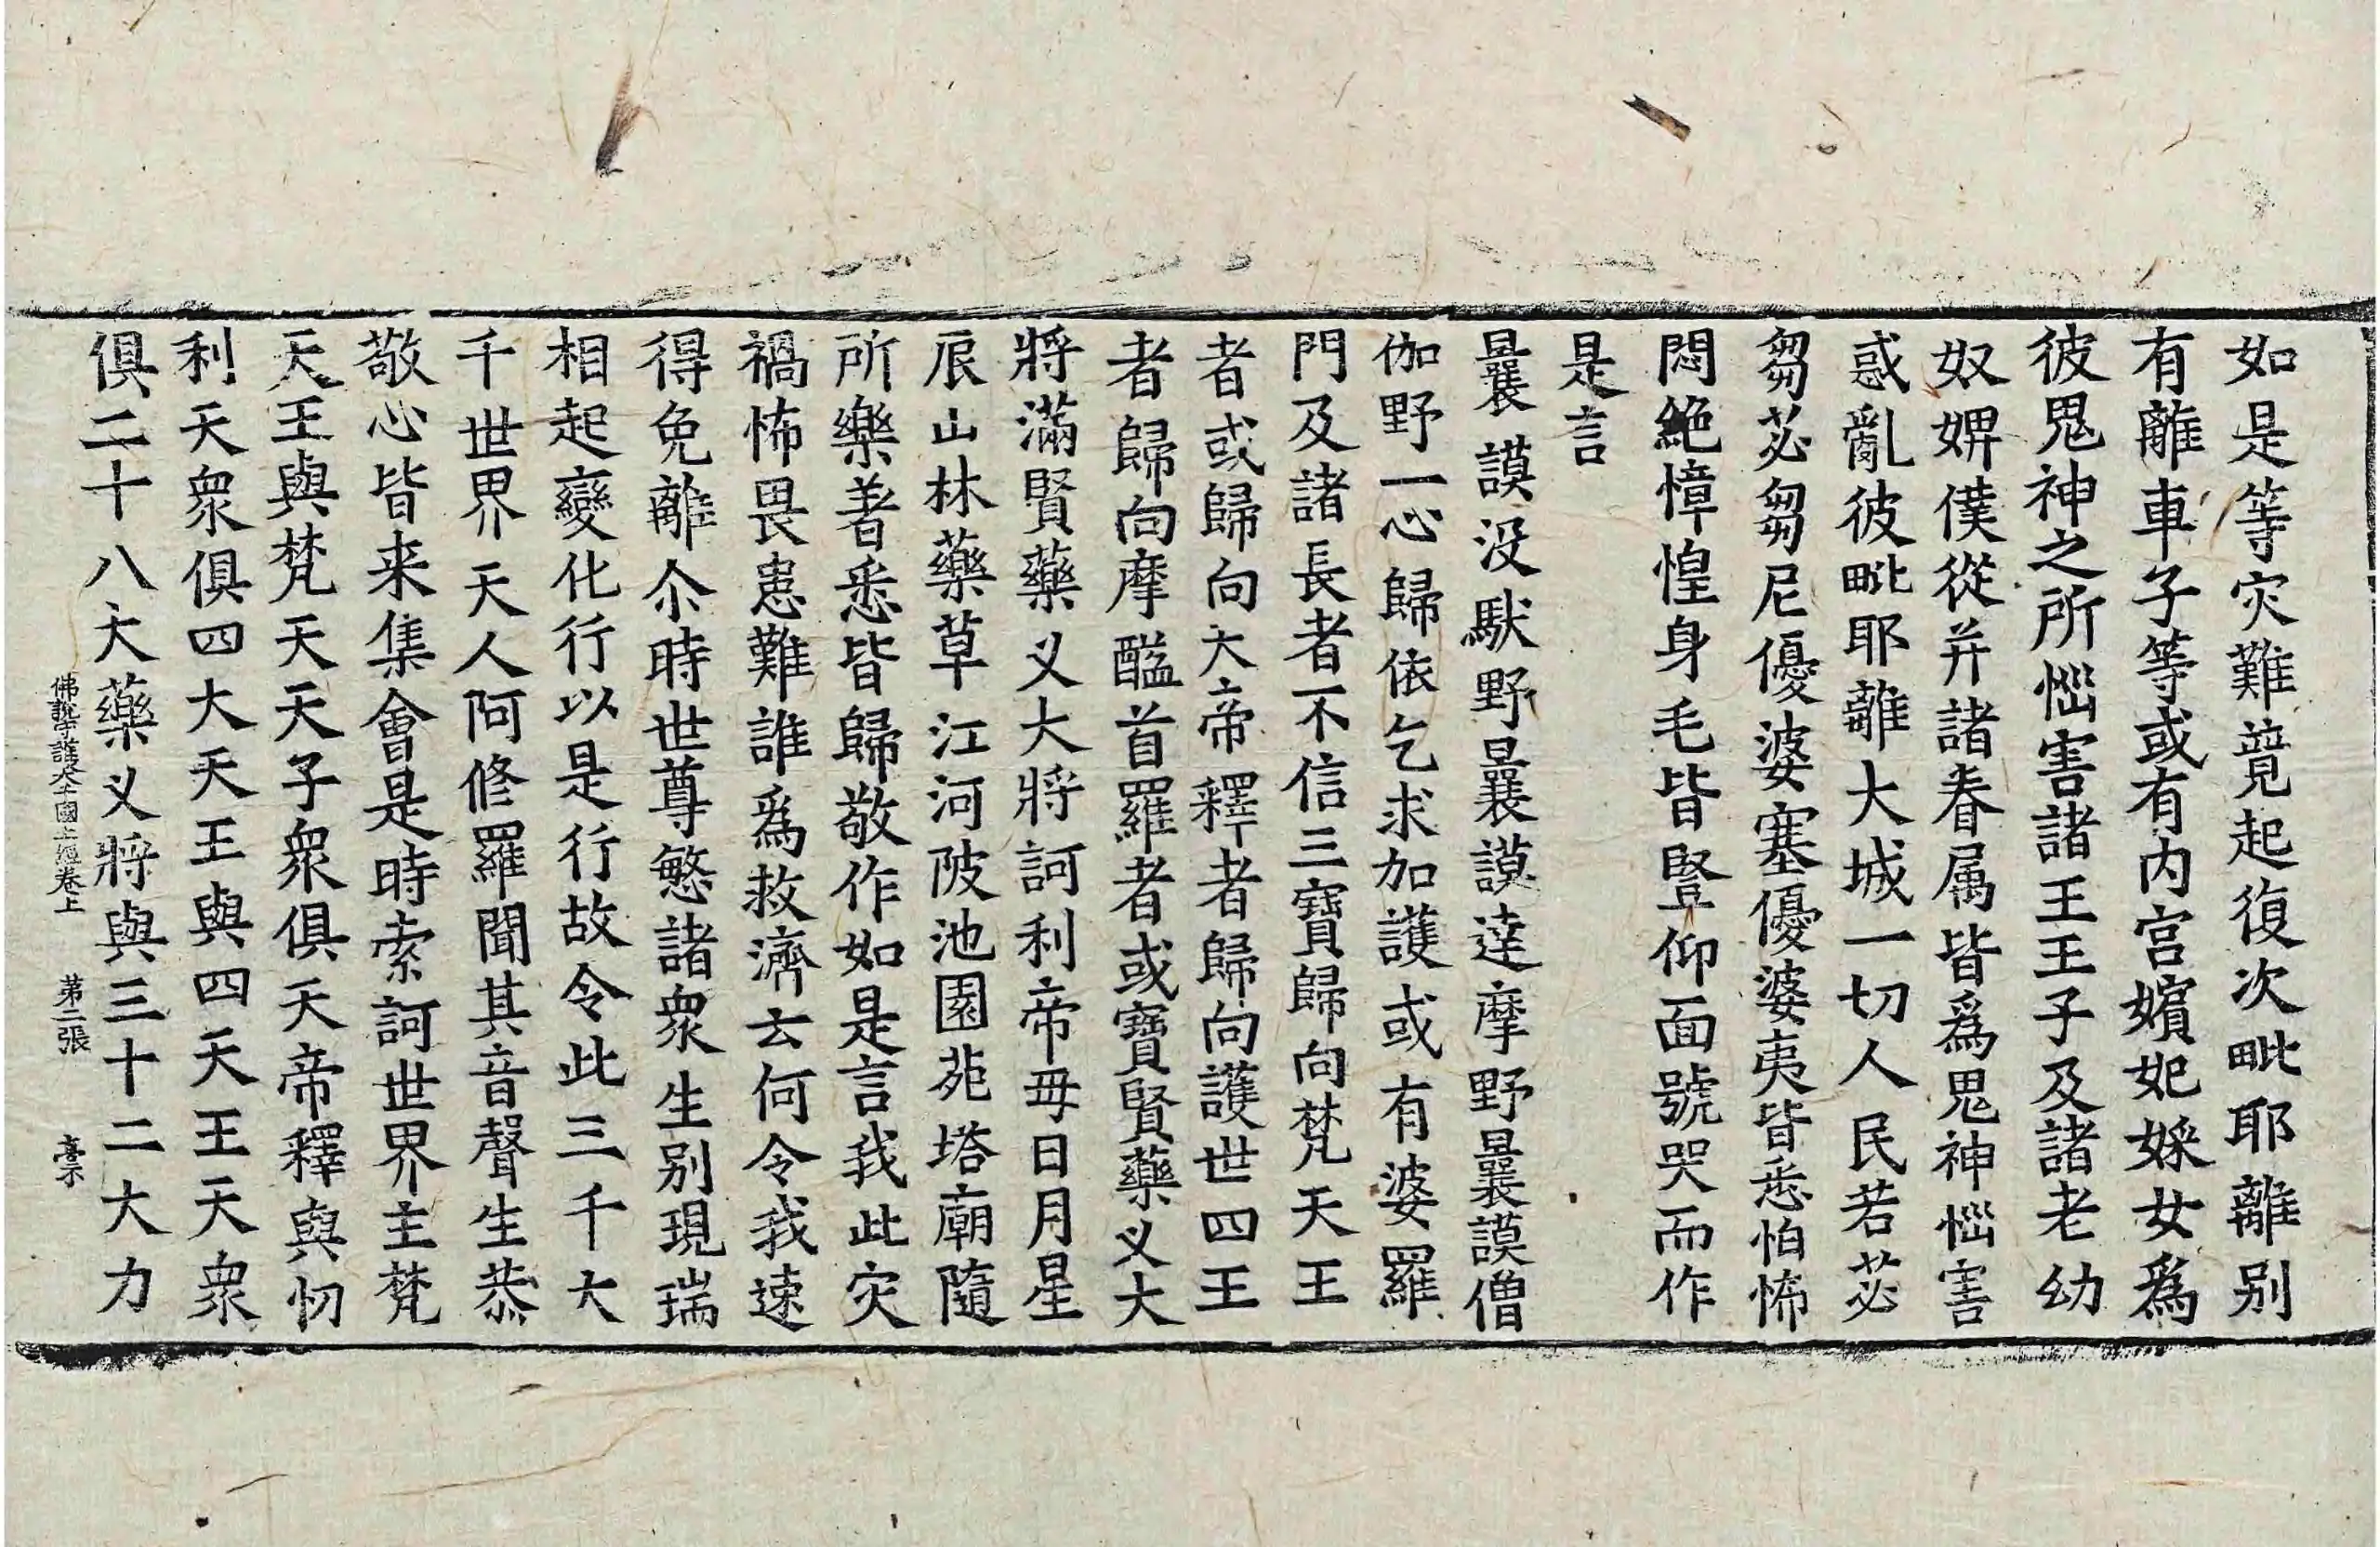 如是等灾難競起復次毗耶離別
有離車子等或有内宫嬪妃婇女爲
彼鬼神之所惱害諸王王子及諸老幼
奴婢僕從并諸眷属皆爲鬼神惱害
惑亂彼毗耶離大城一切人民若苾
芻苾芻尼優婆塞優婆夷皆悉怕怖
悶絶慞惶身毛皆竪仰面號哭而作
是言
曩謨没馱野曩謨達摩野曩謨僧
伽野一心歸依乞求加護或有婆羅
門及諸長者不信三寶歸向梵天王
者或歸向大帝釋者歸向護世四王
者歸向摩醯首羅者或寶賢藥叉大
將滿賢藥叉大將訶利帝母日月星
辰山林藥草江河陂池園苑塔廟隨
所樂著悉皆歸敬作如是言我此灾
禍怖畏患難誰爲救濟云何令我速
得免離尒時世尊愍諸衆生别現瑞
相起變化行以是行故令此三千大
千世界天人阿修羅聞其音聲生恭
敬心皆来集會是時索訶世界主梵
天王與梵天天子衆俱天帝釋與忉
利天衆俱四大天王與四天王天衆
俱二十八大藥叉將與三十二大力
佛說守護大千國土經卷上 第二張 臺